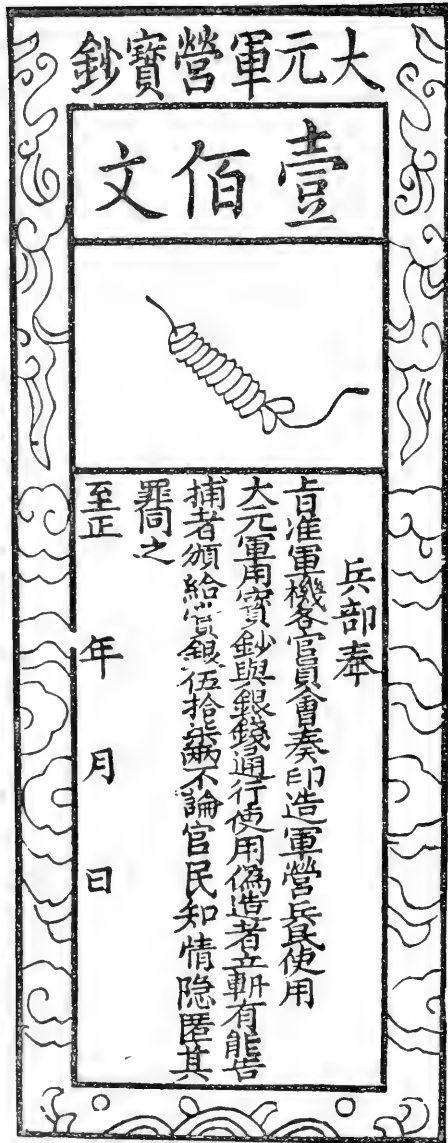 大元軍營寳鈔
壹佰文
兵部奉
旨准軍機各官員會奏印造軍營兵民使用
大元軍用寳鈔與銀錢通行使用偽造者立斬有能告
捕者頒給賞銀伍拾两不論官民知情隐匿其
罪同之
至正 年 月 日